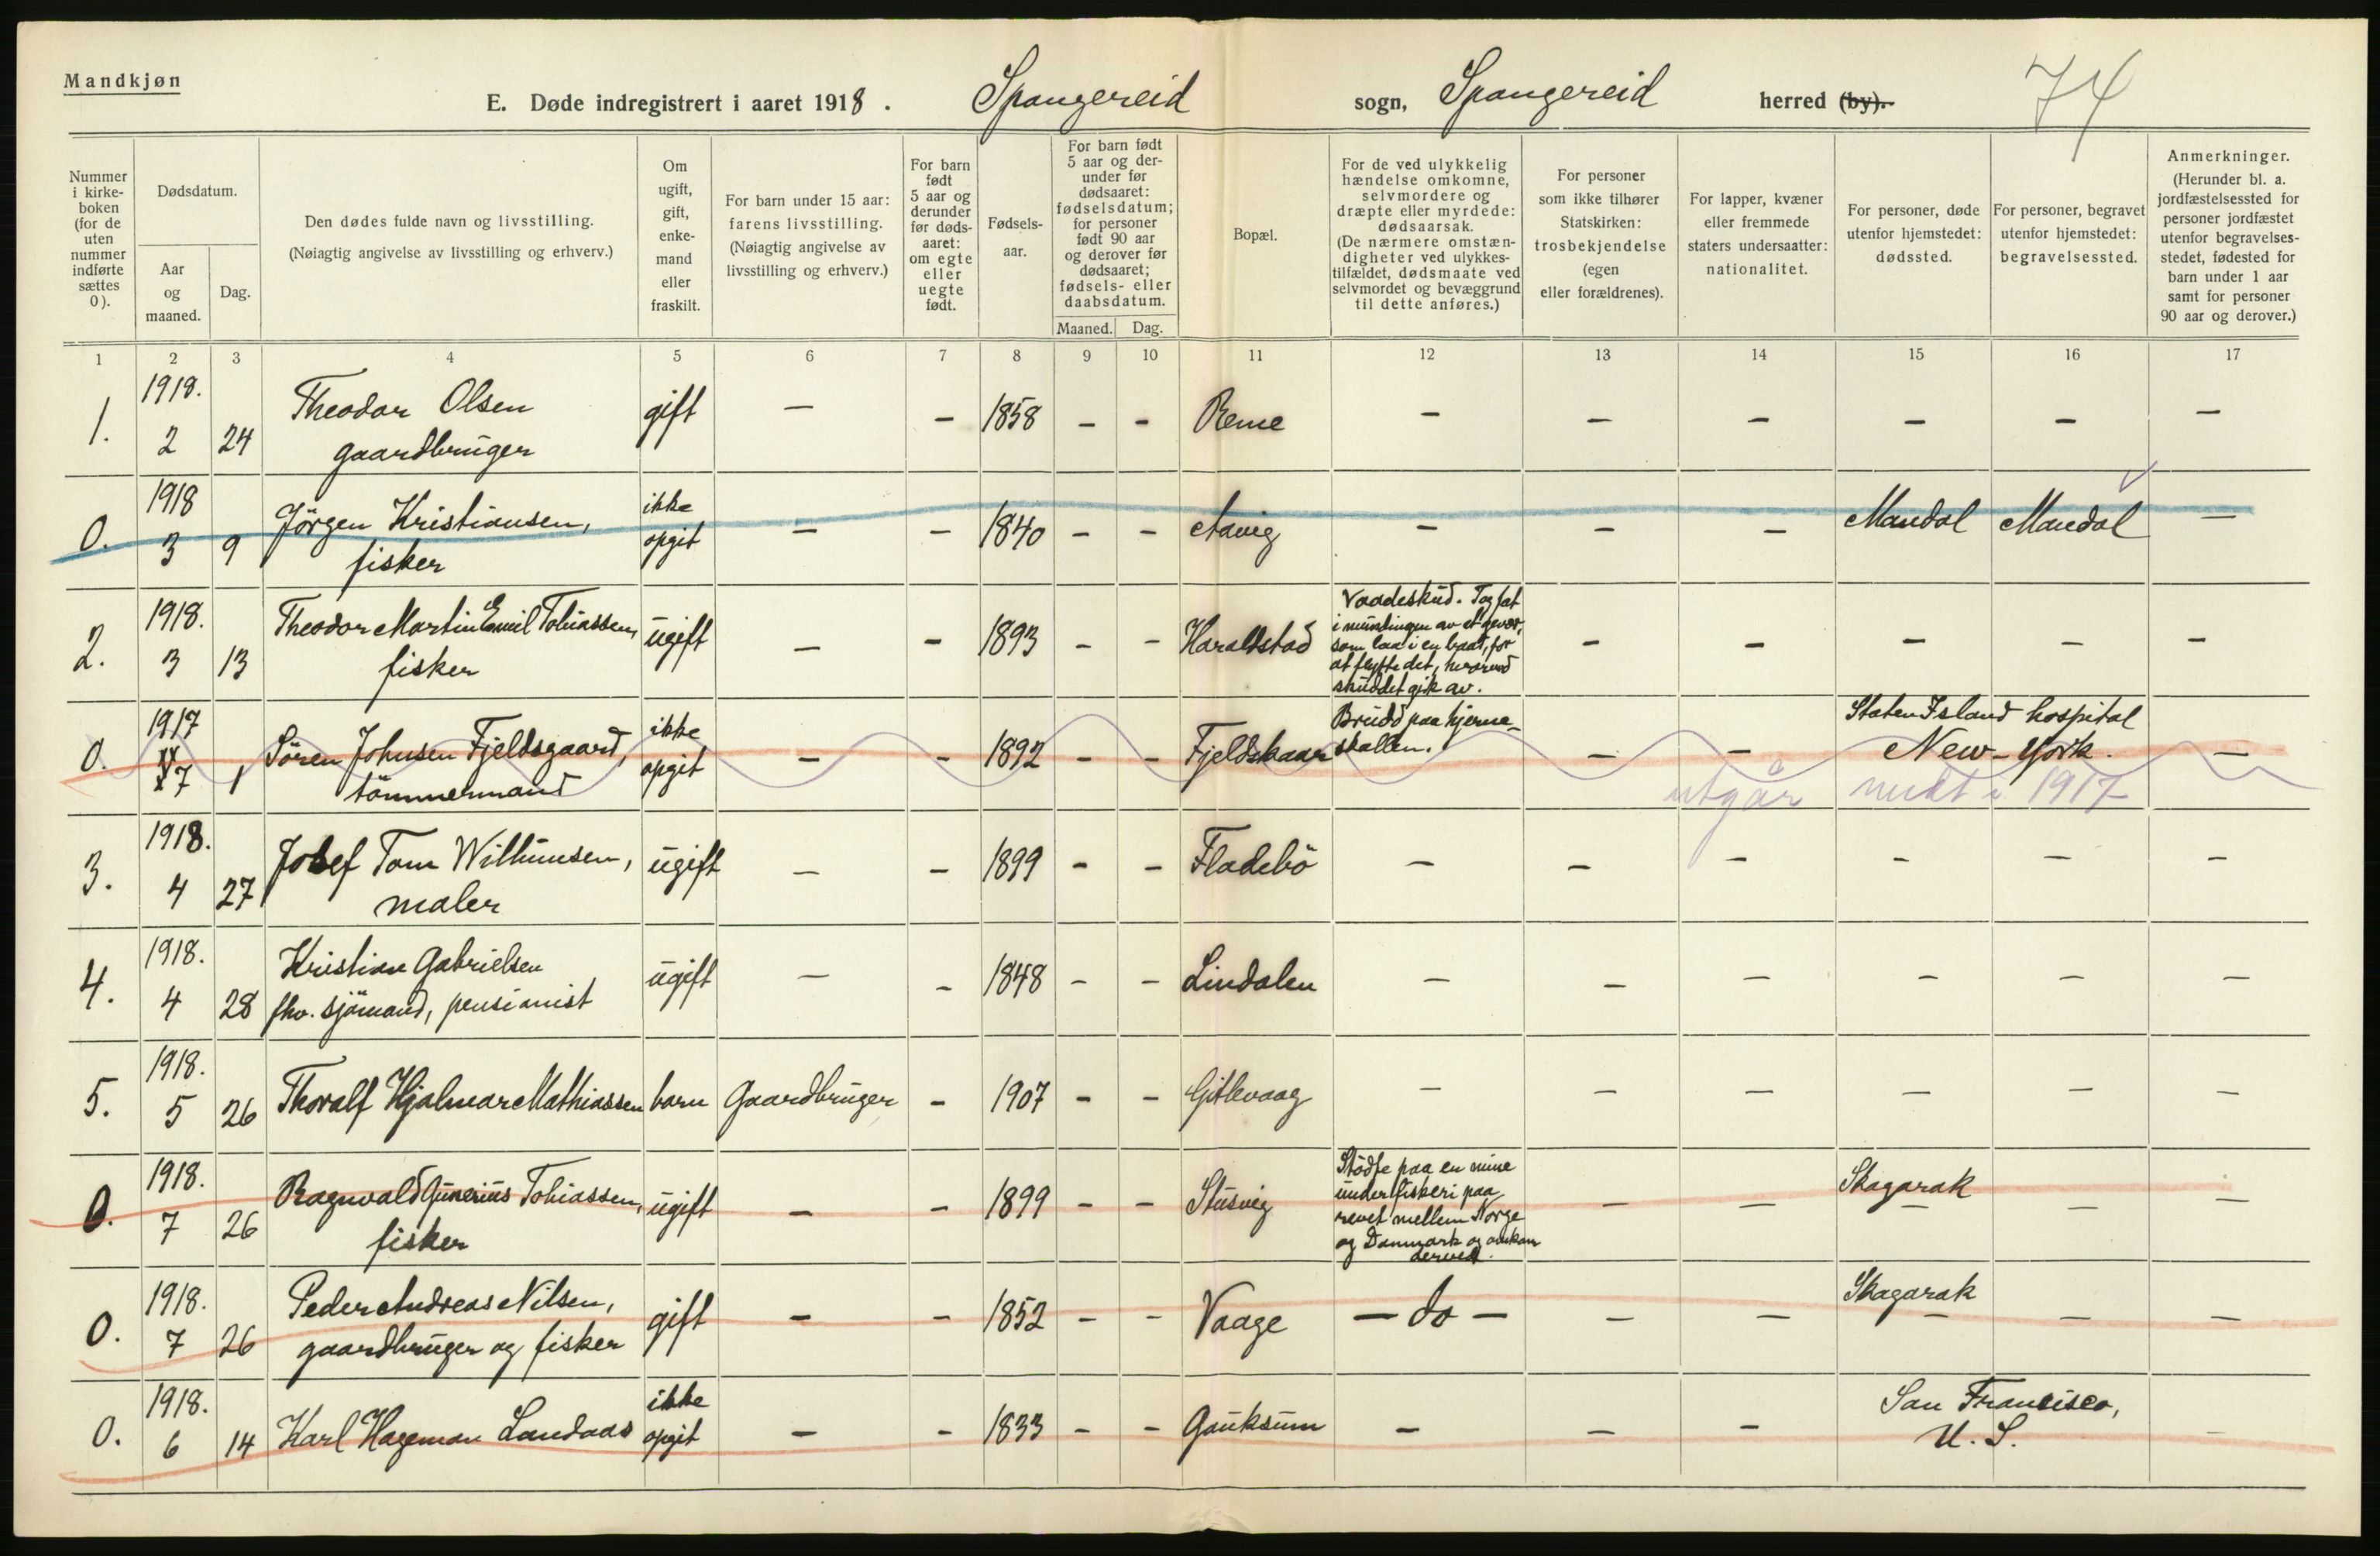 Mandkjøn
E. Døde indregistrert i aaret 1918. Spangereid sogn, Spangereid herred (by).
74
Nummer
i kirke-
boken
(for de
uten
nummer
indførte
sættes
0).
Dødsdatum.
Aar
og
maaned.
Dag.
Den dødes fulde navn og livsstilling.
(Nøiagtig angivelse av livsstilling og erhverv.)
Om
ugift,
gift,
enke-
mand
eller
fraskilt.
For barn under 15 aar:
farens livsstilling.
(Nøiagtig angivelse av
livsstilling og erhverv.)
For barn
født
5 aar og
derunder
før døds-
aaret:
om egte
eller
uegte
født.
Fødsels-
aar.
For barn født
5 aar og der-
under før
dødsaaret:
fødselsdatum;
for personer
født 90 aar
og derover før
dødsaaret;
fødsels- eller
daabsdatum.
Maaned. Dag.
Bopæl.
For de ved ulykkelig
hændelse omkomne,
selvmordere og
dræpte eller myrdede:
dødsaarsak.
(De nærmere omstæn-
digheter ved ulykkes-
tilfældet, dødsmaate ved
selvmordet og bevæggrund
til dette anføres.)
For personer
som ikke tilhører
Statskirken:
trosbekjendelse
(egen
eller forældrenes).
For lapper, kvæner
eller fremmede
staters undersaatter:
nationalitet.
For personer, døde
utenfor hjemstedet:
dødssted.
For personer, begravet
utenfor hjemstedet:
begravelsessted.
Anmerkninger.
(Herunder bl. a.
jordfæstelsessted for
personer jordfæstet
utenfor begravelses-
stedet, fødested for
barn under 1 aar
samt for personer
90 aar og derover.)
1 2 3 4 5 6 7 8 9 10 11 12 13 14 15 16 17
1918.
1. 2 24 Theodor Olsen gift — - 1858 - - Reme - - - - - -
gaardbruger
1918
0. 3 9 Jörgen Kristiansen, ikke opgit - - 1840 - - Aavig - - - Mandal Mandal -
fisker
1918.
2. 3 13 Theodor Martin Emil Tobiassen, ugift - - 1893 - - Haraldstad
fisker
Vaadeskud. Tog fat
i mundingen av et gevær,
som laa i en baat, for
at flytte det, hvorved
skuddet gik av.
- - - - -
1917
0. 7 1 Sören Johnsen Fjeldsgaard, ikke opgit - - 1892 - - Fjeldskaar
tömmermand
Brudd paa hjerne-
skallen.
- - Staten Island hospital
New-York. -
utgår medt i 1917
1918.
3. 4 27 Josef Tom Wilhumsen, ugift - - 1899 - - Fladebö - - - - - -
maler
1918.
4. 4 28 Kristian Gabrielsen ugift - - 1848 - - Lindalen - - - - - -
fhv. sjömand, pensionist
1918.
5. 5 26 Thoralf Hjalmar Mathiassen barn Gaardbruger - 1907 - - Gitlevaag - - - - - -
1918.
0. 7 26 Ragnvald Gunerius Tobiassen, ugift - - 1899 - - Stusvig
fisker
Stödte paa en mine
under fiskeri paa
revet mellem Norge
og Danmark og omkom
derved.
- - Skagarak - - -
1918.
0. 7 26 Peder Andreas Nilsen, gift - - 1852 - - Vaage - do - - - Skagarak - - -
gaardbruger og fisker
1918.
0. 6 14 Karl Hageman Landaas ikke opgit - - 1833 - - Gauksum - - - San Francisco,
U. S. -